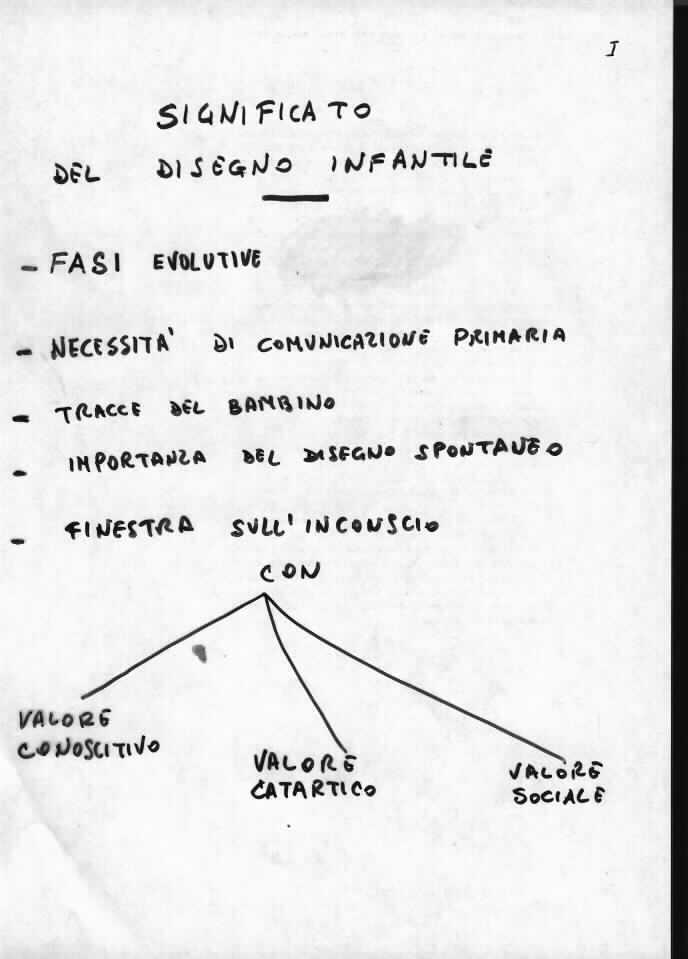 I
SIGNIFICATO
DEL DISEGNO INFANTILE
- FASI EVOLUTIVE
- NECESSITA' DI COMUNICAZIONE PRIMARIA
- TRACCE DEL BAMBINO
- IMPORTANZA DEL DISEGNO SPONTANEO
- FINESTRA SULL'INCONSCIO
CON
VALORE
CONOSCITIVO
VALORE
CATARTICO
VALORE
SOCIALE